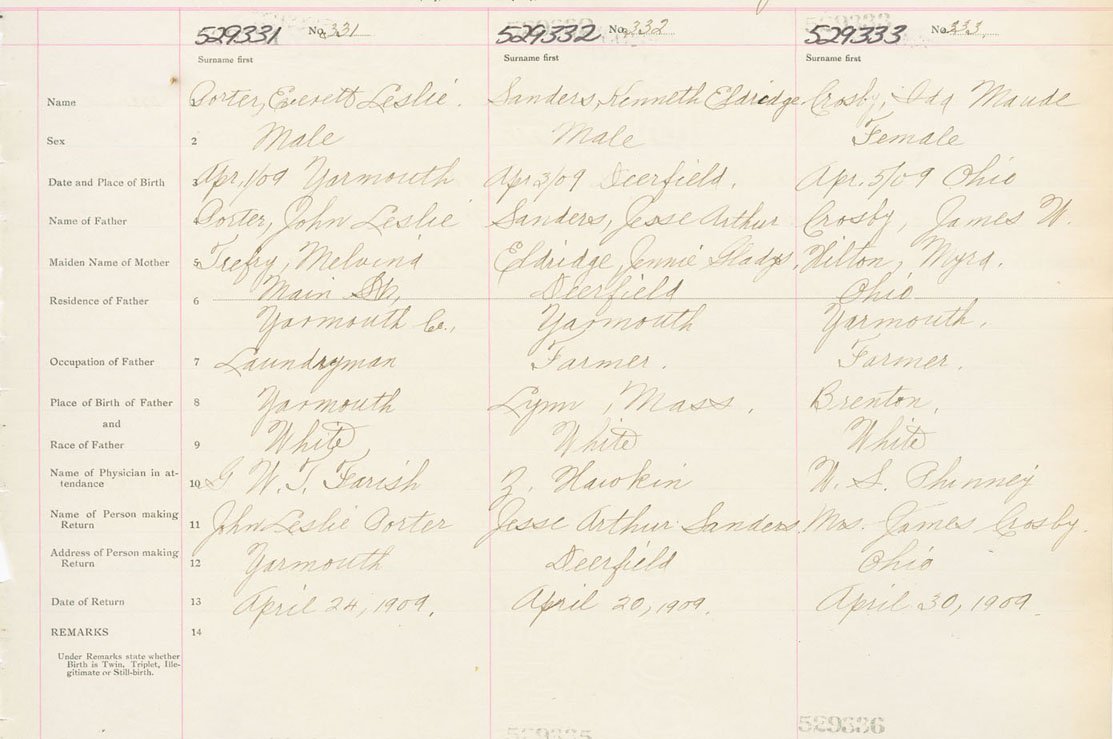 529331 No. 331 529332 No. 332 529333 No. 333
Surname first Surname first Surname first
Name 1 Porter, Everett Leslie. Sanders, Kenneth Eldridge Crosby, Ida Maude
Sex 2 Male Male Female
Date and Place of Birth 3 Apr. 1/09 Yarmouth Apr. 3/09 Deerfield. Apr. 5/09 Ohio
Name of Father 4 Porter, John Leslie Sanders, Jesse Arthur Crosby, James W.
Maiden Name of Mother 5 Trefry, Melvina Eldridge, Jennie Gladys. Hilton, Myra.
Main Deerfield Ohio
Residence of Father 6
Yarmouth Co., Yarmouth Yarmouth.
Occupation of Father 7 Laundryman Farmer. Farmer.
Place of Birth of Father 8 Yarmouth Lynn, Mass. Brenton.
and
Race of Father 9 White White White
Name of Physician in at-
tendance 10 G. W. T. Farish Z. Hawkin W. S. Phinney
Name of Person making
Return 11 John Leslie Porter Jesse Arthur Sanders Mrs. James Crosby.
Address of Person making
Return 12 Yarmouth Deerfield Ohio
Date of Return 13 April 24, 1909. April 20, 1909. April 30, 1909.
REMARKS 14
Under Remarks state whether
Birth is Twin, Triplet, Ille-
gitimate or Still-birth.
529336